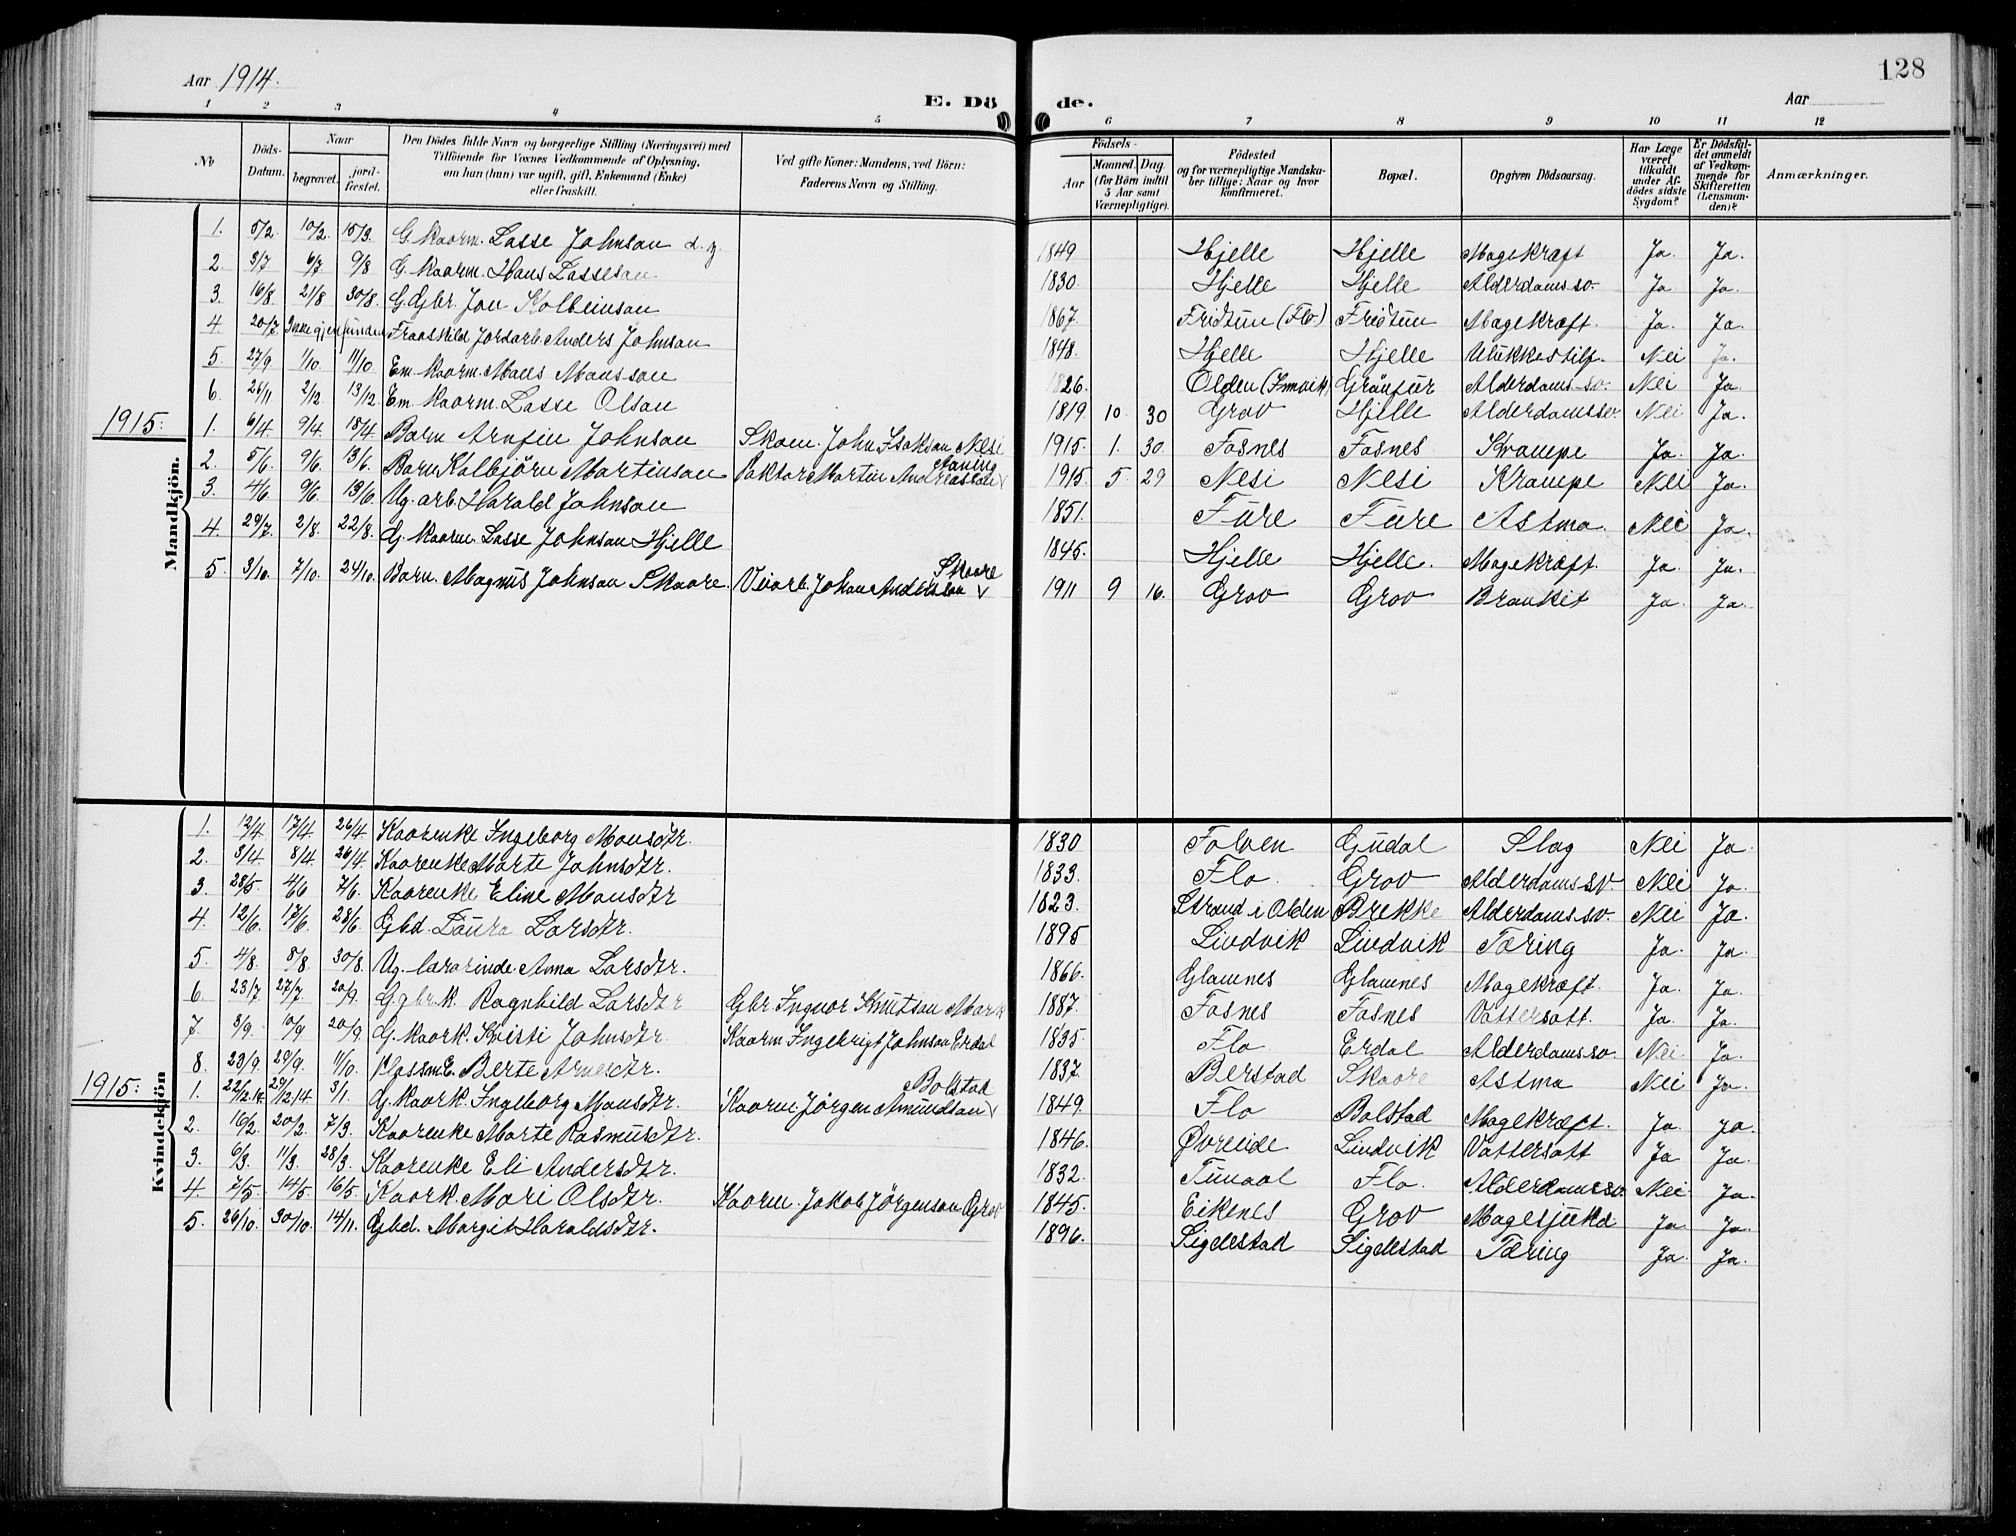 Aar 1914.
E. Döde.
Aar
128
1 2 3 4 5 6 7 8 9 10 11 12
No
Döds-Datum.
Naar begravet. jordfæstet.
Den Dödes fulde Navn og borgerlige Stilling (Næringsvei) med Tilföiende for Voxnes Vedkommende af Oplysning, om han (hun) var ugift, gift, Enkemand (Enke) eller fraskilt.
Ved gifte Koner: Mandens, ved Börn: Faderens Navn og Stilling.
Födsels- Aar Maaned. Dag. (for Börn indtil 5 Aar samt Værnepligtige).
Födested og for værnepligtige Mandskaber tillige: Naar og hvor konfirmeret.
Bopæl.
Opgiven Dödsaarsag.
Har Læge været tilkaldt under Afdödes sidste Sygdom?
Er Dödsfaldet anmeldt af Vedkommende for Skifteretten (Lensmanden)?
Anmærkninger.
Mandkjön.
1. 5/2. 10/2. 15/3. G. Kaarm. Lasse Johnson d. y. 1849 Hjelle Hjelle Magekræft Ja. Ja.
2. 3/7 6/7 9/8 G. Kaarm. Hans Lasseson 1830. Hjelle Hjelle Alderdomssv. Ja Ja.
3. 16/8. 21/8 30/8. G. Gbr. Jon Kolbeinson 1867. Fridtun (Flo) Fridtun Magekræft. Ja. Ja.
4. 20/7. Ikke gjenfunden Fraaskild Jordarb. Anders Johnson 1848. Hjelle Hjelle Ulukkestilf. Nei Ja.
5. 27/9 1/10. 11/10. Em. Kaarm. Mons Monsson 1826. Olden (Innvik) Grönfur Alderdomssv. Nei Ja
6. 26/11 2/12. 13/12. Em. Kaarm. Lasse Olson 1819. 10. 30 Grov Hjelle Alderdomssv. Nei Ja.
1915:
1. 6/4. 9/4. 18/4. Barn Arnfin Johnson Skom. John Isakson Nesi 1915. 1. 30. Fosnes Fosnes Krampe Ja. Ja.
2. 5/6. 9/6. 13/6. Barn Kolbjörn Martinson Faktor Martin Andreasson Aaning 1915. 5. 29 Nesi Nesi Krampe Nei Ja.
3. 4/6. 9/6. 13/6. Ug. arb. Harald Johnson 1851. Fure Fure Astma. Nei Ja.
4. 29/7. 2/8. 22/8. G. Kaarm. Lasse Johnson Hjelle 1845. Hjelle Hjelle. Magekræft. Ja Ja.
5. 3/10. 7/10. 24/10. Barn. Magnus Johnson Skaare. Veiarb. Johan Anderson Skaare 1911 9 16. Grov Grov Bronkit Ja. Ja.
Kvindekjön
1. 13/4. 17/4. 26/4 Kaarenke Ingeborg Monsdtr. 1830 Folven Gudal Slag Nei Ja.
2. 3/4. 8/4. 26/4. Kaarenke Marte Johnsdtr. 1833. Flo. Grov Alderdomssv. Nei Ja.
3. 28/5. 4/6 7/6. Kaarenke Eline Monsdtr 1823. Strand i Olden Brekke Alderdomssv. Nei Ja.
4. 12/6. 17/6. 28/6. Gbd. Laura Larsdtr. 1895 Lindvik Lindvik Tæring Ja. Ja.
5. 4/8. 8/8. 30/8. Ug. lærarinde. Anna Larsdtr. 1866. Glamnes Glamnes Magekræft. Ja. Ja.
6. 23/7. 27/7. 20/9. G. gbr.k. Ragnhild Larsdtr Gbr. Ingvar Knutson Mark 1887. Fosnes Fosnes Vattersott. Ja. Ja.
7. 3/9. 10/9 20/9. G. Kaark. Kristi Johnsdtr. Kaarm. Ingebrigt Johnson Erdal 1835. Flo. Erdal Alderdomssv. Nei Ja.
8. 23/9. 29/9. 11/10. Plassm.E. Berte Arnesdtr. 1837. Berstad Skaare Astma Nei Ja.
1915:
1. 22/12.14. 29/12.14 3/1. G. Kaark. Ingeborg Monsdtr. Kaarm. Jörgen Amundson Bolstad 1849. Flo Bolstad Magekræft. Ja. Ja.
2. 16/2. 20/2. 7/3. Kaarenke Marte Rasmusdtr. 1846. Övreeide Lindvik Vattersott Ja Ja.
3. 6/3. 11/3. 28/3. Kaarenke Eli Andersdtr. 1832. Tunaal Flo. Alderdomssv. Nei Ja.
4. 7/5. 14/5. 16/5. Kaark. Mari Olsdtr. Kaarm. Jakob Jörgenson Grov 1845. Eikenes Grov Magesjukd Ja. Ja.
5. 26/10. 30/10. 14/11. Gbd. Margit Haraldsdtr. 1896. Sigdestad Sigdestad Tæring Ja. Ja.